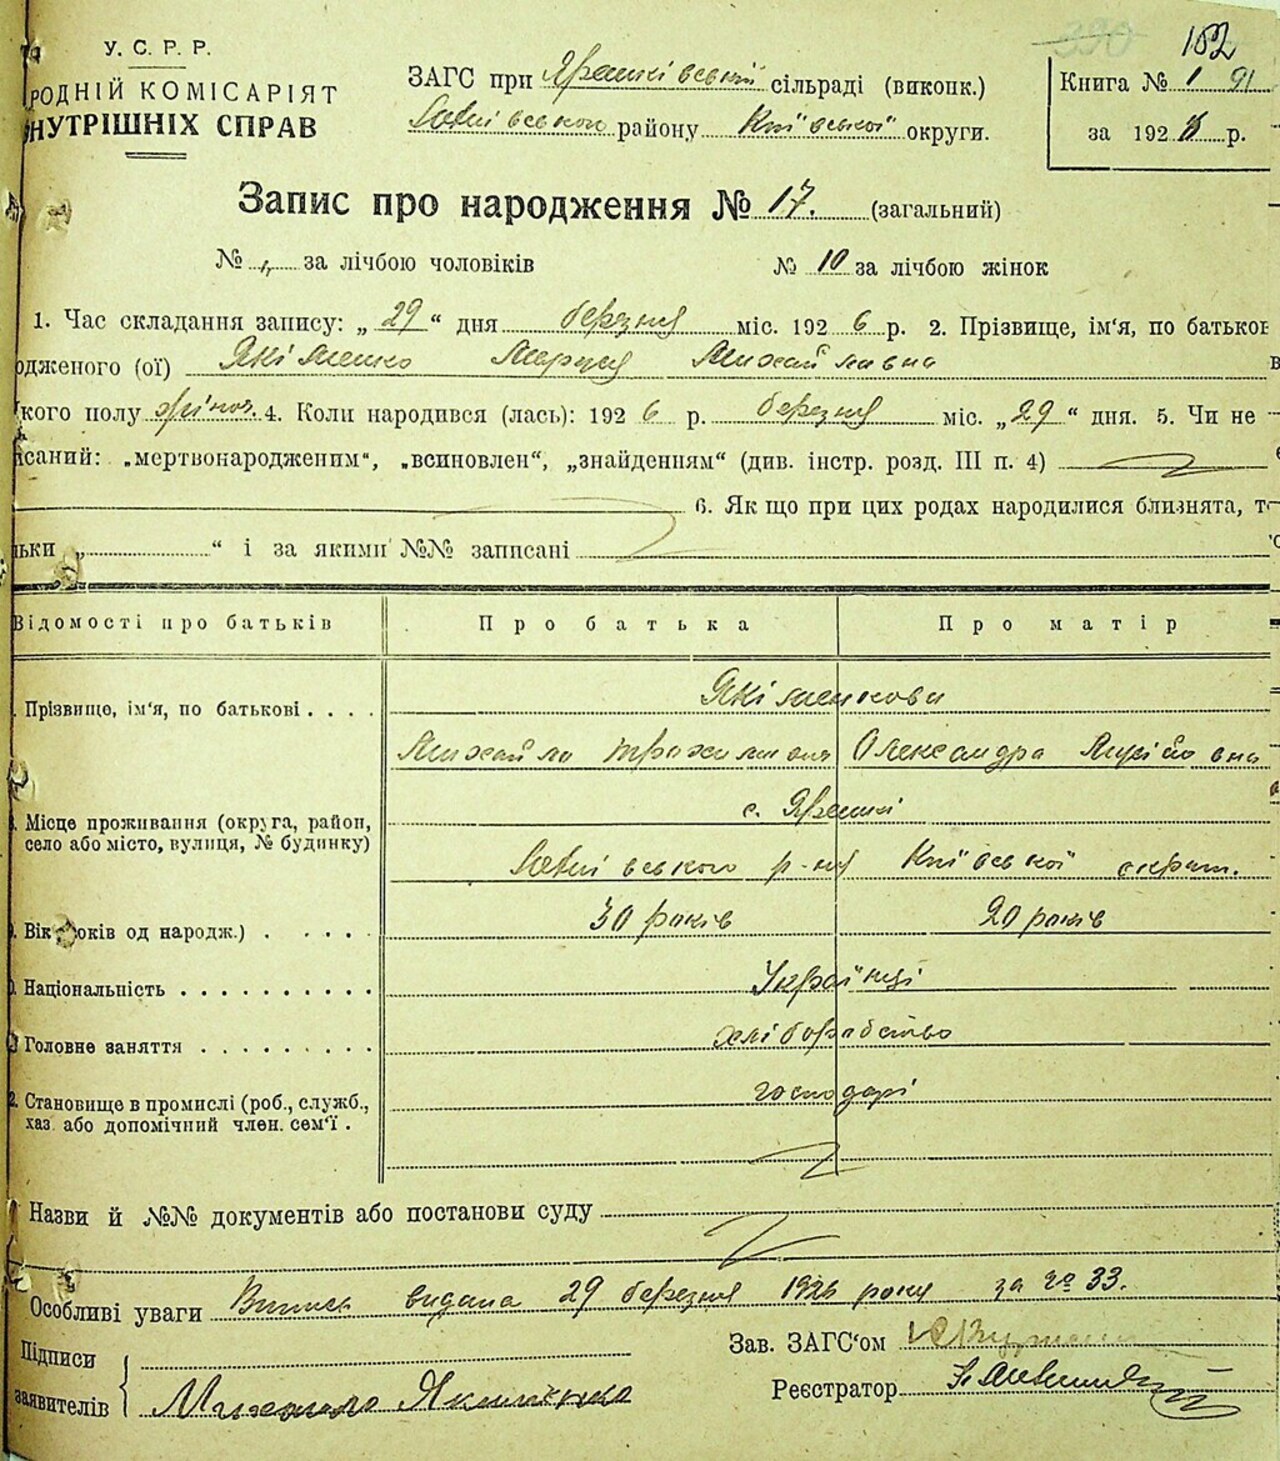 390 152
У. С. Р. Р.
РОДНІЙ КОМІСАРІЯТ
НУТРІШНІХ СПРАВ
ЗАГС при Ярешківській сільраді (виконк.)
району Київської округи.
Книга № 1 91
за 1926 р.
Запис про народження № 17. (загальний)
№ „ за лічбою чоловіків № 10 за лічбою жінок
1. Час складання запису: „29“ дня березня міс. 1926 р. 2. Прізвище, ім'я, по батьков
одженого (ої) Якіменко Марія Михайлівна
кого полу жіноч. 4. Коли народився (лась): 1926 р. березня міс. „29“ дня. 5. Чи не
исаний: „мертвонародженим“, „всиновлен“, „знайденням“ (див. інстр. розд. III п. 4)
6. Як що при цих родах народилися близнята, т
ьки „ “ і за якими №№ записані
Відомості про батьків Про батька Про матір
Прізвище, ім'я, по батькові . . . . Якіменкови
Михайло Олександра
Місце проживання (округа, район, село або місто, вулиця, № будинку) с. Ярешкі
р-ну Київської
Вік років од народж.) . . . . . 30 років 20 років
Національність . . . . . . . . . . Українці
Головне заняття . . . . . . . . . хліборобство
2. Становище в промислі (роб., служб., хаз. або допомічний член. сем'ї . господарі
Назви й №№ документів або постанови суду
Особливі уваги Випись видана 29 березня 1926 року за № 33.
Підписи
заявителів Михаило Якименко
Зав. ЗАГС'ом
Реєстратор